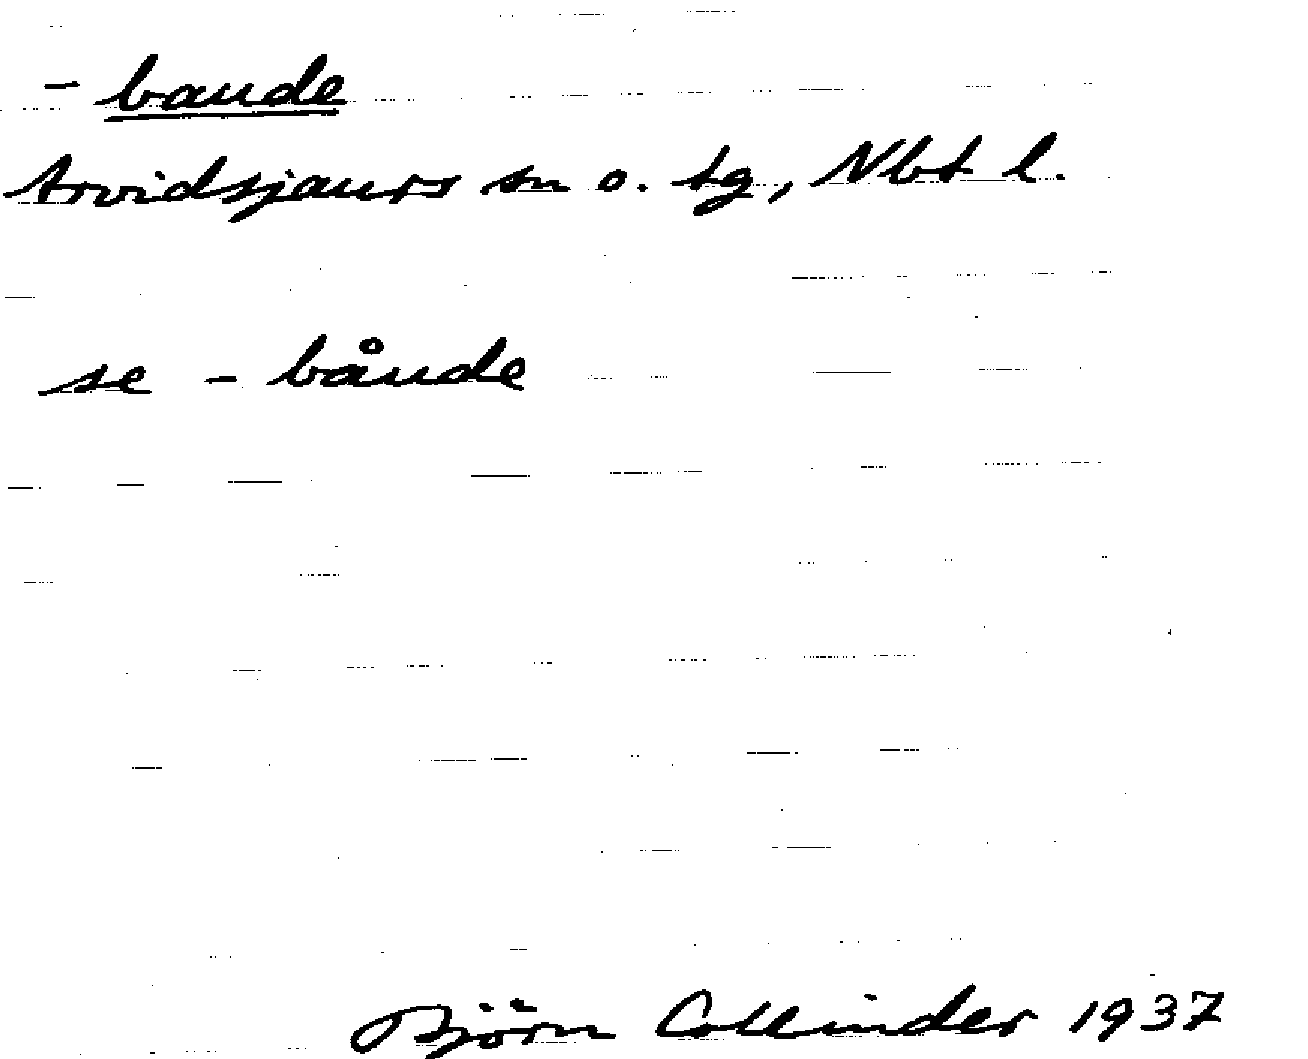 - baude
Arvidsjaurs sn o. tg, Nbt l.
se - båude
Björn Collinder 1937